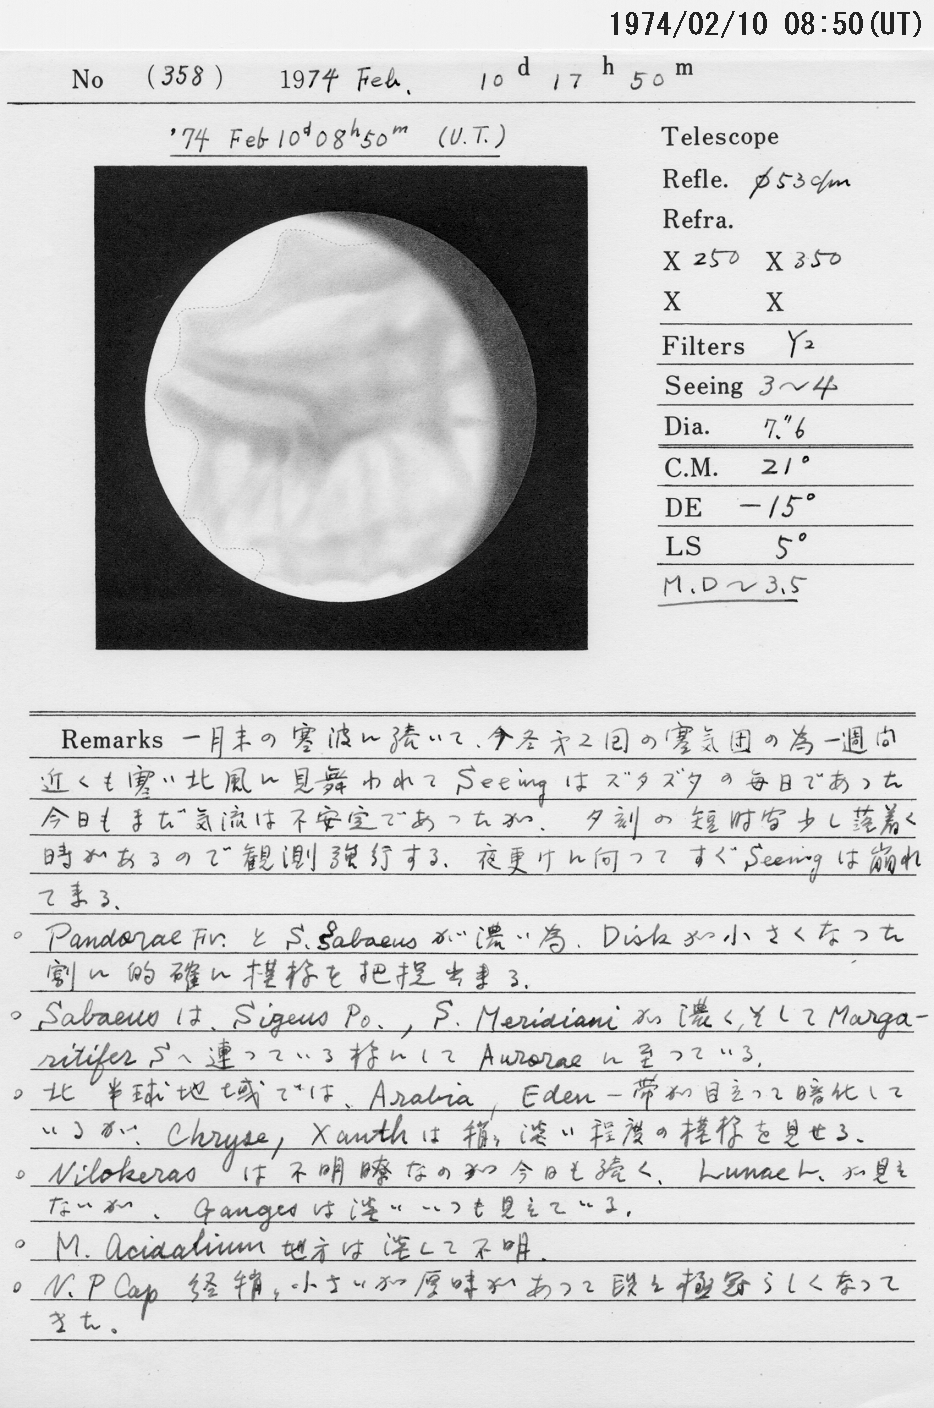 1974/02/10 08:50(UT)
No (358) 1974 Feb. 10d 17h 50m
'74 Feb 10d 08h50m (U.T.)
Telescope
Refle. φ53cm
Refra.
X 250 X 350
X X
Filters Y2
Seeing 3~4
Dia. 7."6
C.M. 21°
DE -15°
LS 5°
M.D ~ 3.5
Remarks 一月末の寒波に続いて、今冬第2回の寒気団の為一週間
近くも寒い北風に見舞われて Seeing はズタズタの毎日であった
今日もまだ気流は不安定であったが、夕刻の短時間少し落着く
時があるので観測強行する。夜更けに向ってすぐ Seeing は崩れ
て来る。
○ Pandorae Fr. と S. Sabaeus が濃い為、Disk が小さくなった
割に的確に模様を把握出来る。
○ Sabaeus は、Sigeus Po., S. Meridiani が濃く、そして Marga-
ritifer S へ連っている様にして Aurorae に至っている。
○ 北半球地域では、Arabia, Eden 一帯が目立って暗化して
いるが、Chryse, Xanth は稍々淡い程度の模様を見せる。
○ Nilokeras は不明瞭なのが今日も続く、Lunae L. が見え
ないが、Ganges は淡いいつも見えている。
○ M. Acidalium 地方は淡くて不明。
○ N. P Cap 径稍々小さいが厚味があって段々極冠らしくなって
きた。